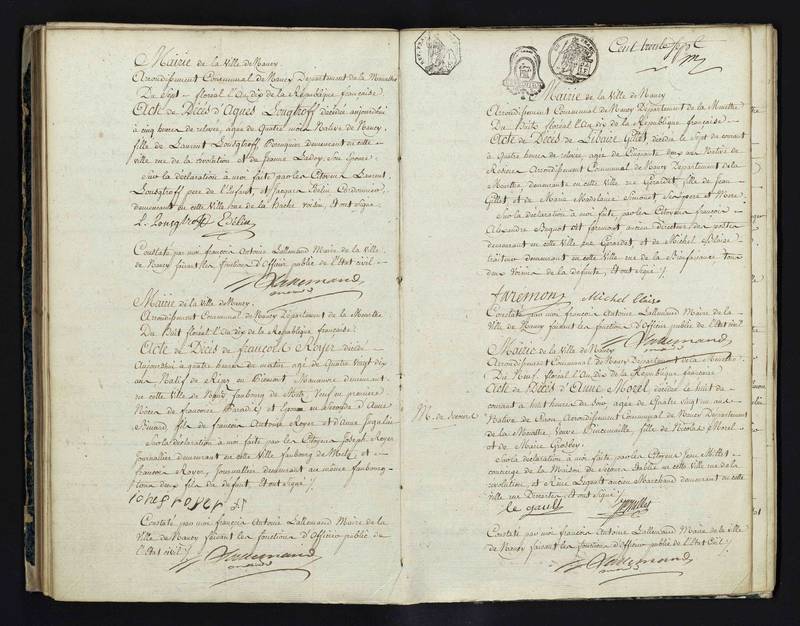 Mairie de la Ville de Nancy.
Arrondissement Communal de Nancy Département de la Meurthe
Du Sept floréal l'an dix de la République française
Acte de Décès d'Agnès décédée aujourd'hui
à cinq heures de relevée, agée de Quatre mois Native de Nancy
fille de Laurent demeurant en cette
ville rue de la révolution et de Jeanne son épouse
sur la déclaration à moi faite par les Citoyens Laurent
père de l'enfant, et Jacques Cordonnier
demeurant en cette Ville rue de la hache voisin, et ont signé
Constaté par moi françois Antoine Lallemand Maire de la Ville
de Nancy faisant les fonctions d'Officier public de l'état civil
Lallemand
Mairie de la Ville de Nancy.
Arrondissement Communal de Nancy Département de la Meurthe
Du Huit floréal l'an dix de la République française
Acte de Décès de françois Royer décédé
Aujourd'hui à quatre heures du matin agé de Quatre vingt dix
ans Natif de en Piémont Manœuvre demeurant
en cette ville de Nancy faubourg de Metz, Veuf en première
Nôces de françoise et Epoux en seconde d'Anne
fils de françois Antoine Royer et d'Anne
sur la déclaration à moi faite par les Citoyens Joseph Royer
Journalier demeurant en cette Ville faubourg de Metz et
françois Royer, Journallier demeurant au même faubourg
tous deux fils du défunt et ont signé
royer
Constaté par moi françois Antoine Lallemand Maire de la
Ville de Nancy faisant les fonctions d'Officier public de
l'état civil
Lallemand
Cent trente sept
Mairie de la Ville de Nancy
Arrondissement Communal de Nancy Département de la Meurthe
Du Huit floréal l'an dix de la République française
Acte de Décès de Libaire Gillet, décédée le Sept du courant
à Quatre heures de relevée, agée de Cinquante deux ans Native de
Rosière Arrondissement Communal de Nancy Département de la
Meurthe, demeurante en cette Ville rue Girardet fille de Jean
Gillet et de Marie Madelaine ses père et mère
sur la déclaration à moi faite, par les Citoyens françois
Alexandre dit faremont ancien Directeur des postes
demeurant en cette Ville rue Girardet et de Michel
traiteur demeurant en cette Ville rue de la Bienfaisance tous
deux Voisins de la défunte, et ont signé
faremont Michel
Constaté par moi françois Antoine Lallemand Maire de la
Ville de Nancy faisant les fonctions d'Officier public de l'état Civil
Lallemand
Mairie de la Ville de Nancy
Arrondissement Communal de Nancy Département de la Meurthe
Du Neuf floréal l'an dix de la République française
Acte de Décès d'Anne Morel décédée le huit du
M. de Secours
courant à huit heures du soir, agée de Quatre vingt un ans
Native de Arrondissement Communal de Nancy Département
de la Meurthe, Veuve fille de Nicolas Morel
et de Marie
sur la déclaration à moi faite, par les Citoyens Jean
concierge de la Maison de Secours établie en cette Ville rue de la
révolution, et ancien Marchand demeurant en cette
ville rue Descartes, et ont signé
Constaté par moi françois Antoine Lallemand Maire de la Ville
de Nancy faisant les fonctions d'Officier public de l'état Civil
Lallemand